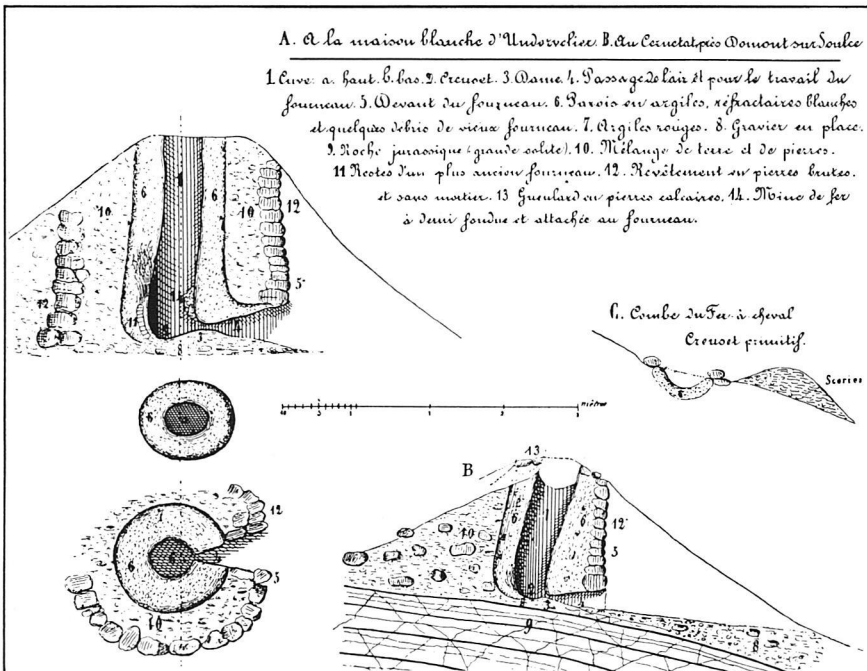 A. A la maison blanche d'Undervelier. B. Au Cernetat, près Domont sur Soulce
1 Cuve: a. haut. b. bas. 2. Creuset. 3. Dame. 4. Passage de l'air et pour le travail du
fourneau. 5. Devant du fourneau. 6. Parois en argiles, réfractaires blanches
et quelques débris de vieux fourneau. 7. Argiles rouges. 8. Gravier en place.
9. Roche jurassique (grande solite). 10. Mélange de terre et de pierres.
11 Restes d'un plus ancien fourneau. 12. Revêtement en pierres brutes.
et sans mortier. 13 Gueulard en pierres calcaires. 14. Mine de fer
à demi fondue et attachée au fourneau.
6 1 6
10 10 12
14 5
12 11
3
8
Combe du Fer à cheval
Creuset primitif.
Scories
6
mètres
6
13
B
1
6 6 12
10
5
3
9 8
7
12
6
5
10